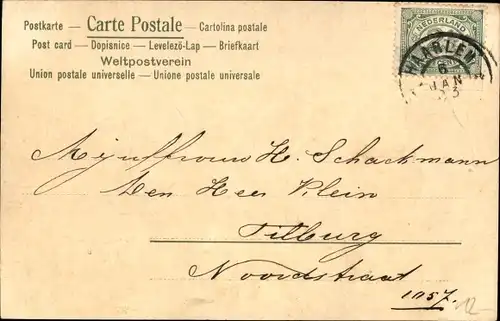 Postkarte – Carte Postale – Cartolina postale
Post card – Dopisnice – Levelező-Lap – Briefkaart
Weltpostverein
Union postale universelle – Unione postale universale
NEDERLAND
HAARLEM
6
JAN
Mejuffrouw H. Schackmann
Den Heer Klein
Tilburg
Noordstraat
1057.
12